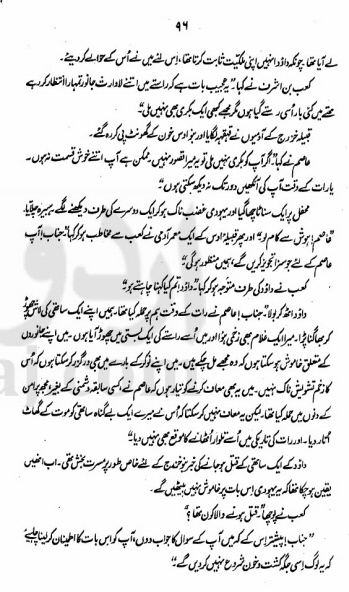 ۹۶
لے آیا تھا۔ چونکہ داؤد انہیں اپنی ملکیت ثابت کرتا تھا، اِس لئے میں نے اُس کے حوالے کر دیئے۔
کعب بن اشرف نے کہا۔ ”یہ عجیب بات ہے کہ راستے میں اتنے لاوارث جانور تمہارا انتظار کر رہے
تھے میں کئی بار اُسی رستے گیا ہوں مگر مجھے کبھی ایک بکری بھی نہیں ملی“۔
قبیلہ خزرج کے آدمیوں نے قہقہہ لگایا اور بنو اوس خون کے گھونٹ پی کر رہ گئے۔
عاصم نے کہا ”اگر آپ کو بکری نہیں ملی تو یہ میرا قصور نہیں۔ ممکن ہے آپ اتنے خوش قسمت نہ ہوں۔
یا رات کے وقت آپ کی آنکھیں دُور تک نہ دیکھ سکتی ہوں“
محفل پر ایک سناٹا چھا گیا اور یہودی غضب ناک ہو کر ایک دوسرے کی طرف دیکھنے لگے ہبیرہ چلّایا۔
”عاصم! ہوش سے کام لو“ اور پھر قبیلۂ اوس کے ایک معمر آدمی نے کعب سے مخاطب ہو کر کہا ”جناب! آپ
عاصم کے لئے جو سزا تجویز کریں گے ہمیں منظور ہوگی“
کعب نے داؤد کی طرف متوجہ ہو کر کہا۔ ”داؤد! تم کیا کہنا چاہتے ہو؟“
داؤد اُٹھ کر بولا۔ ”جناب! عاصم نے رات کے وقت ہم پر حملہ کیا تھا۔ ہمیں اپنے ایک ساتھی کی لاش چھوڑ
کر بھاگنا پڑا۔ میرا ایک غلام بھی زخمی ہوا اور میں اُسے راستے کی ایک بستی میں چھوڑ آیا ہوں۔ میں اپنے جانوروں
کے متعلق خاموش ہو سکتا ہوں کہ وہ مجھے مل چکے ہیں۔ میں اپنے نوکر کے بارے میں بھی درگزر کر سکتا ہوں کہ اُس
کا زخم تشویش ناک نہیں۔ میں یہ بھی معاف کرنے کو تیار ہوں کہ عاصم نے کسی سابقہ دشمنی کے بغیر مجھ پر امن
کے دنوں میں حملہ کیا تھا۔ لیکن یہ معاف نہیں کر سکتا کہ اُس نے میرے ایک بے گناہ ساتھی کو موت کے گھاٹ
اُتار دیا۔ اور رات کی تاریکی میں اُسے تلوار اُٹھانے کا موقع بھی نہیں دیا۔“
داؤد کے ایک ساتھی کے قتل ہو جانے کی خبر بنو خزرج کے لئے خاص طور پر مسرت بخش تھی۔ اب انھیں
یقین ہو چکا تھا کہ یہ یہودی اِس بات پر خاموش نہیں بیٹھیں گے۔
کعب نے پُوچھا ”قتل ہونے والا کون تھا؟“
”جناب! پیشتر اِس کے کہ میں آپ کے سوال کا جواب دوں، آپ کو اس بات کا اطمینان کر لینا چاہیے
کہ یہ لوگ اِسی جگہ کُشت و خون شروع نہیں کر دیں گے“